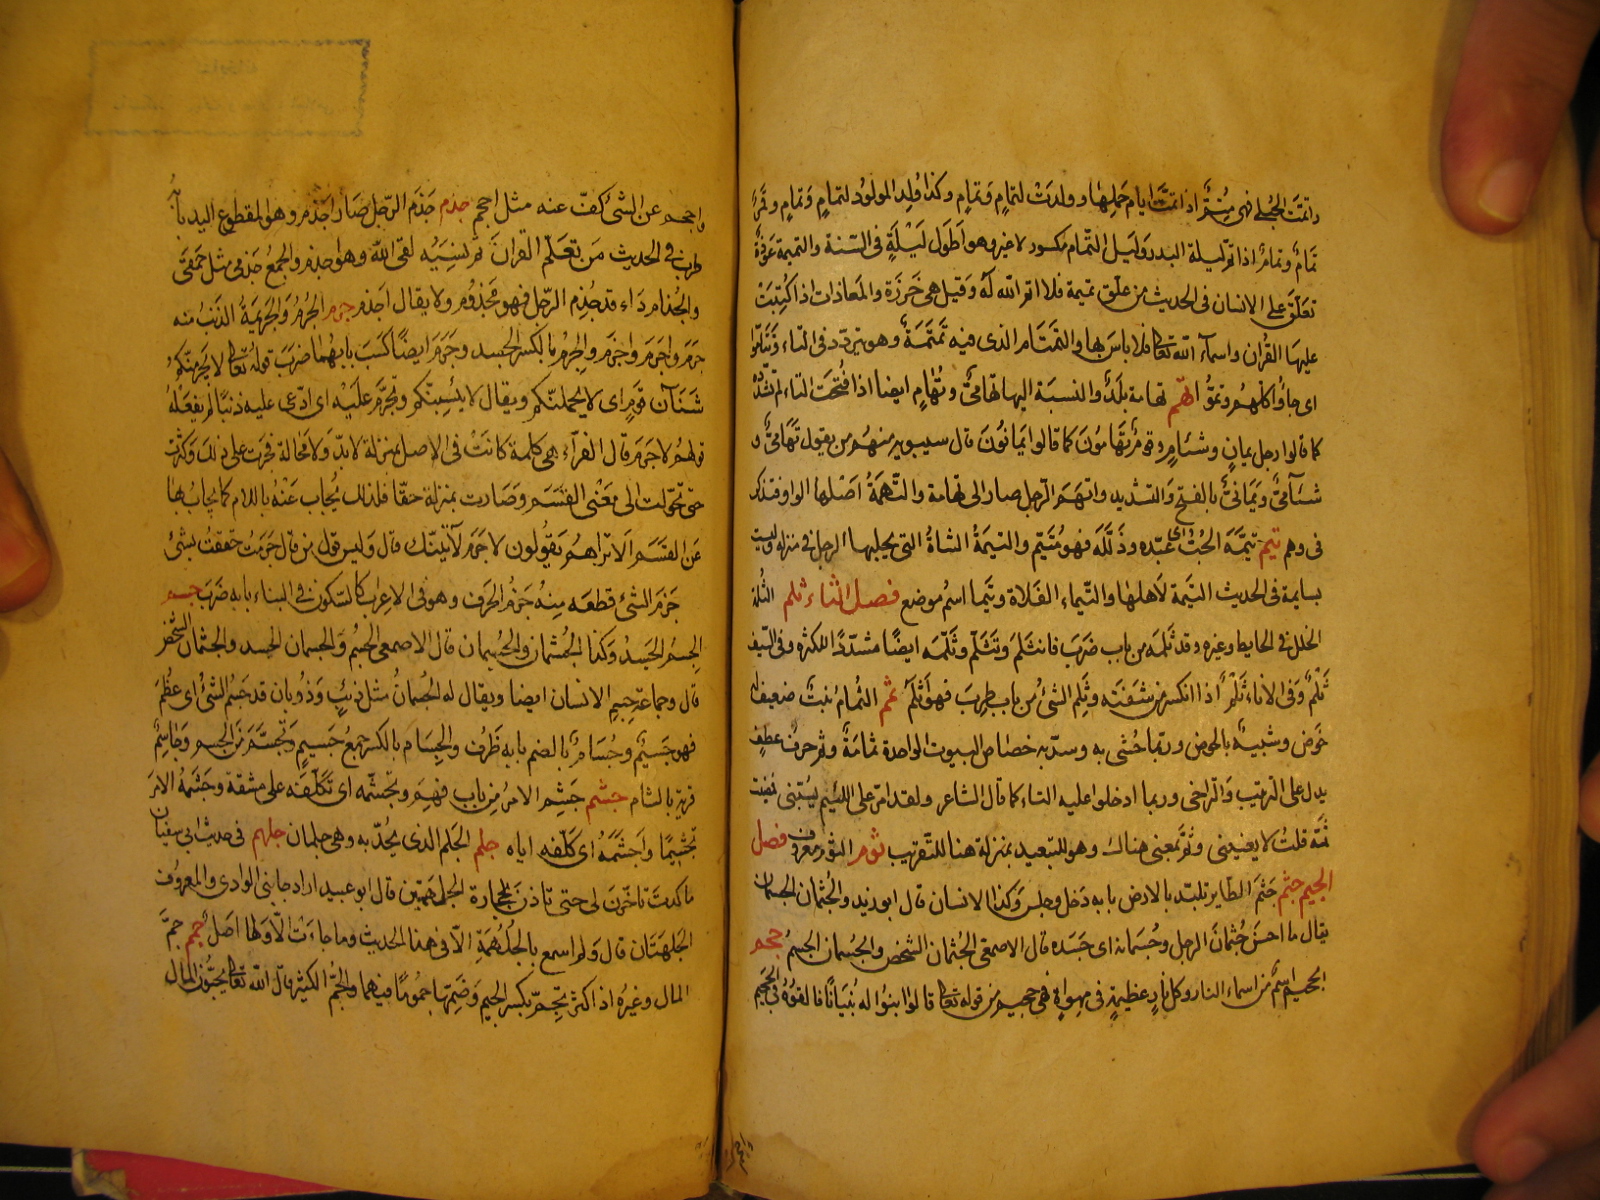 واتمت الحبلى فهى متم اذا تمت ايام حملها وولدت لتمام وتمام وكذا ولد المولود لتمام وتمام وقمر
تمام وتمام اذا تم ليلة البدر وليل التمام مكسور لا غير وهو اطول ليلة فى السنة والتميمة عوذة
تعلق على الانسان فى الحديث من علق تميمة فلا اتم الله له وقيل هى خرزة والمعاذات اذا كتبت
عليها القرآن واسماء الله تعالى فلا باس بها والتمتام الذى فيه تمتمة وهو يتردد فى التاء وتتاموا
اى جاؤا كلهم وتموا تهم تهامة بلد والنسبة اليها تهامى وتهام ايضا اذا فتحت التاء لم تشدد
كما قالوا رجل يمان وشآم وقوم تهامون كما قالوا يمانون قال سيبويه منهم من يقول تهامى و
شآمى ويمانى بالفتح والتشديد واتهم الرجل صار الى تهامة والتهمة اصلها الواو فتذكر
فى وهم تيم تيمه الحب اى عبده وذلله فهو متيم والتيمة الشاة التى يحلبها الرجل فى منزله وليست
بسايمة فى الحديث التيمة لاهلها والتيماء الفلاة وتيما اسم موضع فصل الثاء ثلم الثلمة
الخلل فى الحايط وغيره وقد ثلمه من باب ضرب فانثلم وتثلم وثلمه ايضا مشددا للكثره وفى السيف
ثلم وفى الاناء ثلم اذا انكسر من شفته وثلم الشئ من باب طرب فهو اثلم ثمم الثمام نبت ضعيف له
خوص وشبيه بالخوص وربما حشى به وسد به خصاص البيوت الواحدة ثمامة وثم حرف عطف
يدل على الترتيب والتراخى وربما ادخلوا عليه التاء كما قال الشاعر ولقد امر على اللئيم يسبنى فمضيت
ثمة قلت لا يعنينى وثم بمعنى هناك وهو للتبعيد بمنزلة هنا للتقريب ثوم الثوم معروف فصل
الجيم جثم جثم الطاير تلبد بالارض بابه دخل وجلس وكذا الانسان قال ابو زيد والجثمان الجسمان
يقال ما احسن جثمان الرجل وجسمانه اى جسده قال الاصمعى الجثمان الشخص والجسمان الجسم جحم
الجحيم اسم من اسماء النار وكل نار عظيمة فى مهواة فهى جحيم من قوله تعالى قالوا ابنوا له بنيانا فالقوه فى الجحيم
واجحم
واجحم عن الشئ كف عنه مثل احجم جذم جذم الرجل صار اجذم وهو المقطوع اليد بابه
طرب فى الحديث من تعلم القرآن ثم نسيه لقى الله وهو اجذم والجمع جذمى مثل حمقى
والجذام داء قد جذم الرجل فهو مجذوم ولا يقال اجذم جرم الجرم والجريمة الذنب منه
جرم واجرم واجترم والجرم بالكسر الجسد وجرم ايضا كسب بابهما ضرب قوله تعالى لا يجرمنكم
شنآن قوم اى لا يحملنكم ويقال لا يكسبنكم وتجرم عليه اى ادعى عليه ذنبا لم يفعله
قولهم لا جرم قال الفراء هى كلمة كانت فى الاصل بمنزلة لا بد ولا محالة فجرت على ذلك وكثرت
حتى تحولت الى معنى القسم وصارت بمنزلة حقا فلذلك يجاب عنه باللام كما يجاب بها
عن القسم الا تراهم يقولون لا جرم لآتينك قال وليس قول من قال جرمت حققت بشئ
جزم الشئ قطعه منه جزم الحرف وهو فى الاعراب كالسكون فى البناء بابه ضرب جسم
الجسم الجسد وكذا الجثمان والجسمان قال الاصمعى الجسم والجسمان الجسد والجثمان الشخص
قال وجماعة جسم الانسان ايضا ويقال له الجسمان مثل ذئب وذوبان قد جسم الشئ اى عظم
فهو جسيم وجسام بالضم بابه ظرف والجسام بالكسر جمع جسيم وتجسم من الجسم وجاسم
قرية بالشام جشم جشم الامر من باب فهم وتجشمه اى تكلفه على مشقة وجشمه الامر
تجشيما واجشمه اى كلفه اياه جلم الجلم الذى يجذ به وهى جلمان جلهم فى حديث ابى سفيان
ما كدت تاذن لى حتى تاذن لحجارة الجلهمتين قال ابو عبيد اراد جانبى الوادى والمعروف
الجلهتان قال ولم اسمع بالجلهمة الا فى هذا الحديث وما جاءت الا ولها اصل جمم جم
المال وغيره اذا كثر يجم بكسر الجيم وضمها جموما فيهما والجم الكثير قال الله تعالى يحبون المال